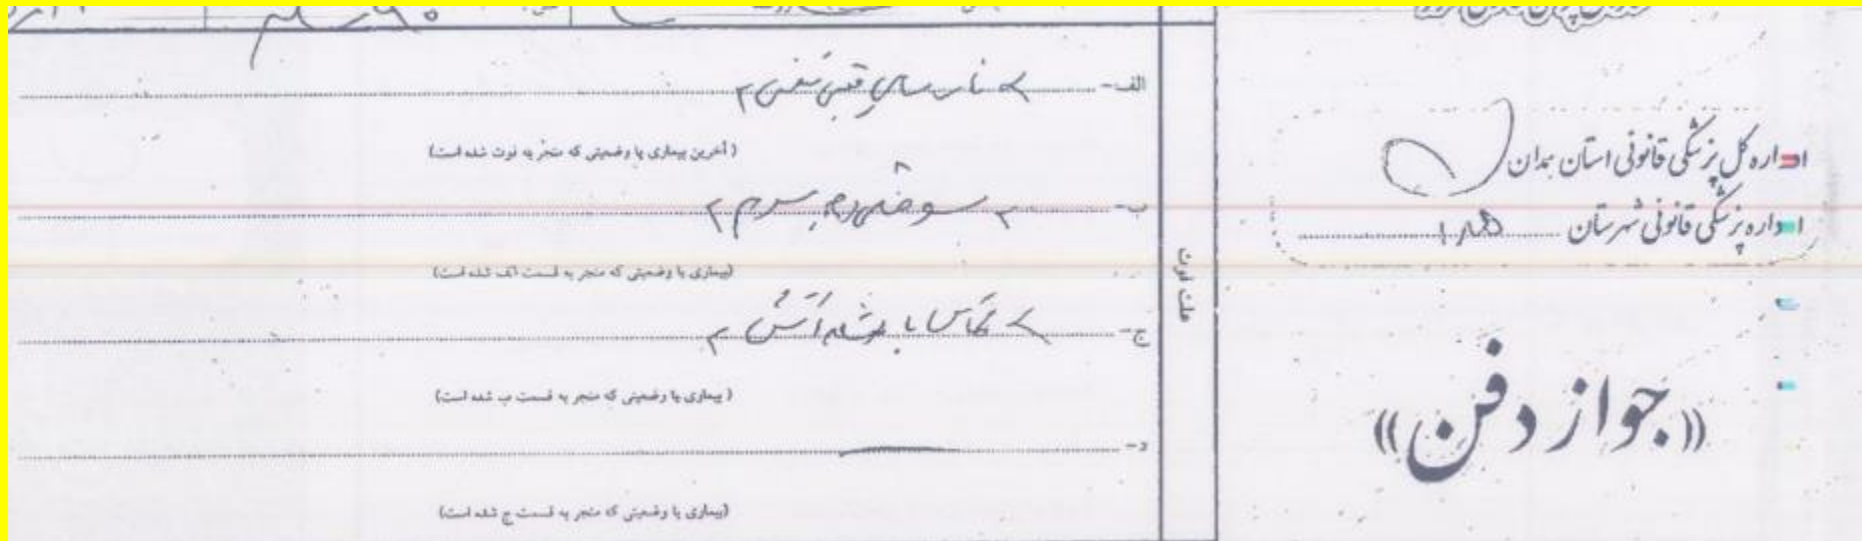 اداره کل پزشکی قانونی استان همدان
اداره پزشکی قانونی شهرستان
«جواز دفن»
علت فوت
الف- نارسایی قلبی تنفسی
(آخرین بیماری یا وضعیتی که منجر به فوت شده است)
ب- سوختگی درجه سوم
(بیماری یا وضعیتی که منجر به قسمت الف شده است)
ج- تماس با شعله آتش
(بیماری یا وضعیتی که منجر به قسمت ب شده است)
د-
(بیماری یا وضعیتی که منجر به قسمت ج شده است)